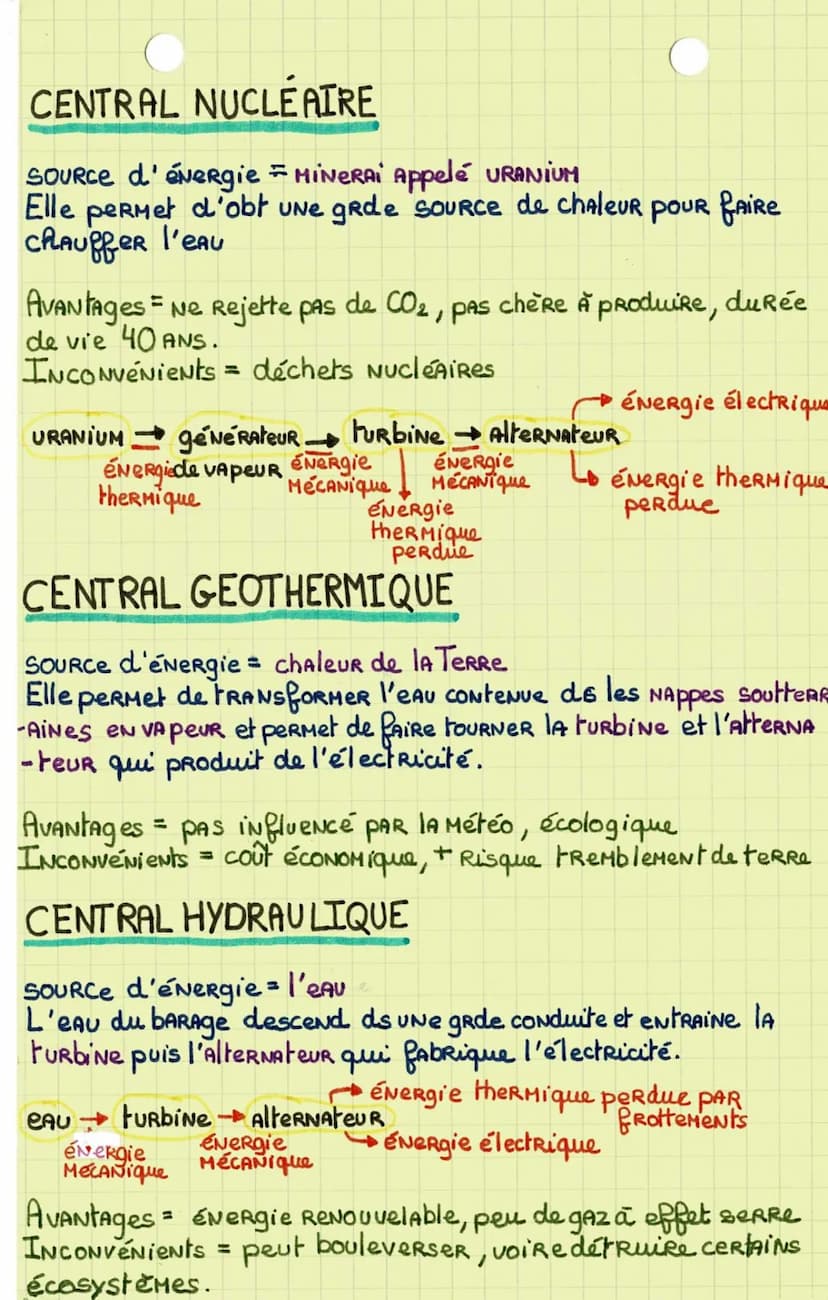 CENTRAL NUCLÉAIRE
source d'énergie = minerai appelé uranium
Elle permet d'obt une grde source de chaleur pour faire
chauffer l'eau
Avantages = ne rejette pas de CO₂, pas chère à produire, durée
de vie 40 ans.
Inconvénients = déchets nucléaires
énergie électrique
uranium → générateur → turbine → alternateur
énergie de vapeur énergie énergie énergie thermique
thermique mécanique mécanique perdue
énergie
thermique
perdue
CENTRAL GEOTHERMIQUE
source d'énergie = chaleur de la Terre
Elle permet de transformer l'eau contenue ds les nappes soutterr
-aines en vapeur et permet de faire tourner la turbine et l'alterna
-teur qui produit de l'électricité.
Avantages = pas influencé par la météo, écologique
Inconvénients = coût économique, + risque tremblement de terre
CENTRAL HYDRAULIQUE
source d'énergie = l'eau
L'eau du barage descend ds une grde conduite et entraine la
turbine puis l'alternateur qui fabrique l'électricité.
énergie thermique perdue par
frottements
eau → turbine → alternateur
énergie énergie énergie électrique
mécanique mécanique
Avantages = énergie renouvelable, peu de gaz à effet serre
Inconvénients = peut bouleverser, voire détruire certains
écosystèmes.